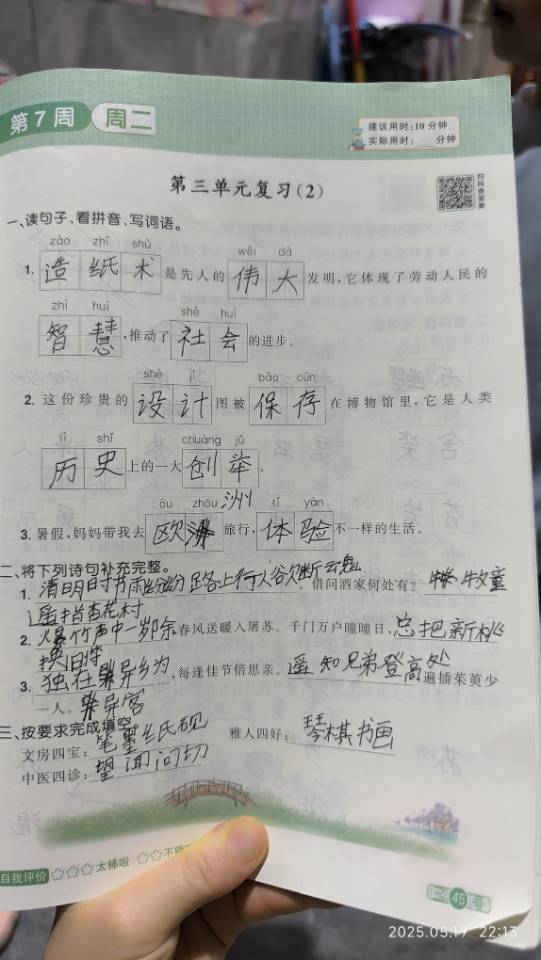 第7周 周二
建议用时:10分钟
实际用时: 分钟
第三单元复习(2)
扫码查答案
一、读句子,看拼音,写词语。
zào zhǐ shù wěi dà
1. 造纸术是先人的伟大发明,它体现了劳动人民的
zhì huì shè huì
智慧,推动了社会的进步。
shè jì bǎo cún
2. 这份珍贵的设计图被保存在博物馆里,它是人类
lì shǐ chuàng jǔ
历史上的一大创举。
ōu zhōu 洲 tǐ yàn
3. 暑假,妈妈带我去欧洲旅行,体验不一样的生活。
二、将下列诗句补充完整。
1. 清明时节雨纷纷路上行人欲断魂。借问酒家何处有?牧童
遥指杏花村
2. 爆竹声中一岁除春风送暖入屠苏。千门万户曈曈日,总把新桃
换旧符
3. 独在异乡为,每逢佳节倍思亲。遥知兄弟登高处遍插茱萸少
一人。异客
三、按要求完成填空。
文房四宝:笔墨纸砚 雅人四好:琴棋书画
中医四诊:望闻问切
自我评价 太棒啦 不错
45
2025.05.19 22:13